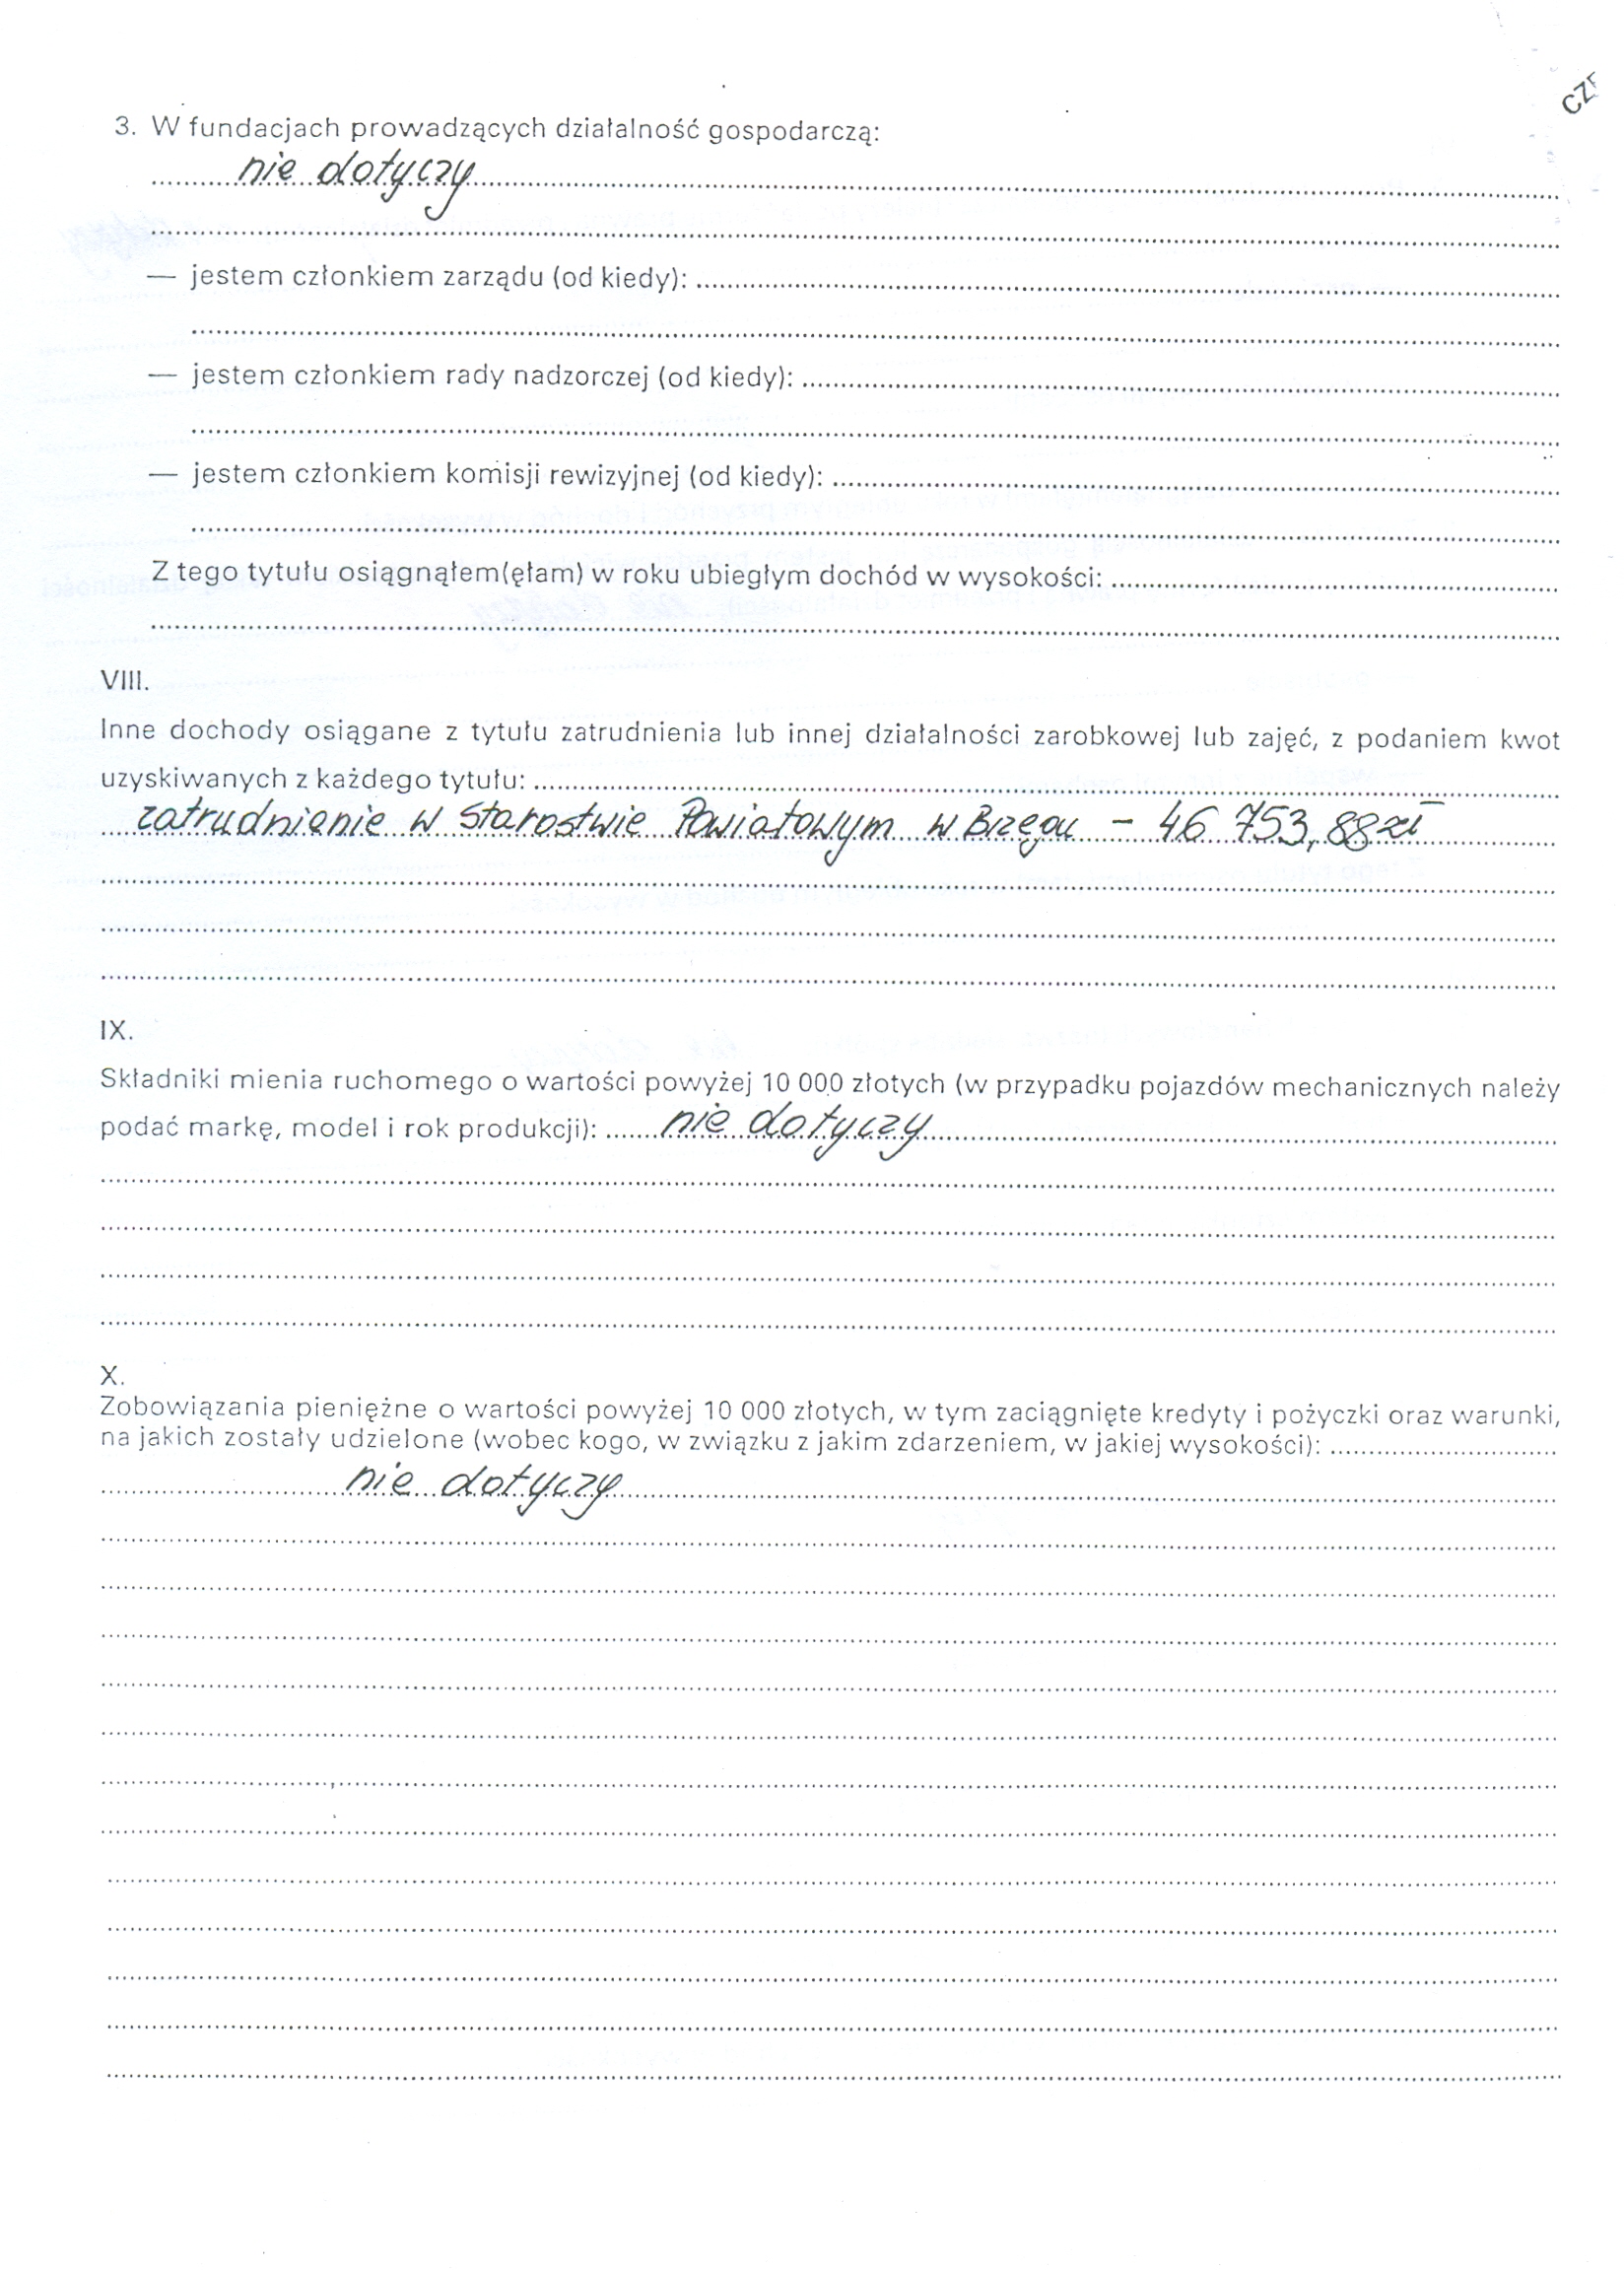 CZĘ
3. W fundacjach prowadzących działalność gospodarczą:
nie dotyczy
— jestem członkiem zarządu (od kiedy):
— jestem członkiem rady nadzorczej (od kiedy):
— jestem członkiem komisji rewizyjnej (od kiedy):
Z tego tytułu osiągnąłem(ęłam) w roku ubiegłym dochód w wysokości:
VIII.
Inne dochody osiągane z tytułu zatrudnienia lub innej działalności zarobkowej lub zajęć, z podaniem kwot
uzyskiwanych z każdego tytułu:
zatrudnienie w Starostwie Powiatowym w Brzegu - 46 753,88 zł
IX.
Składniki mienia ruchomego o wartości powyżej 10 000 złotych (w przypadku pojazdów mechanicznych należy
podać markę, model i rok produkcji): nie dotyczy
X.
Zobowiązania pieniężne o wartości powyżej 10 000 złotych, w tym zaciągnięte kredyty i pożyczki oraz warunki,
na jakich zostały udzielone (wobec kogo, w związku z jakim zdarzeniem, w jakiej wysokości):
nie dotyczy